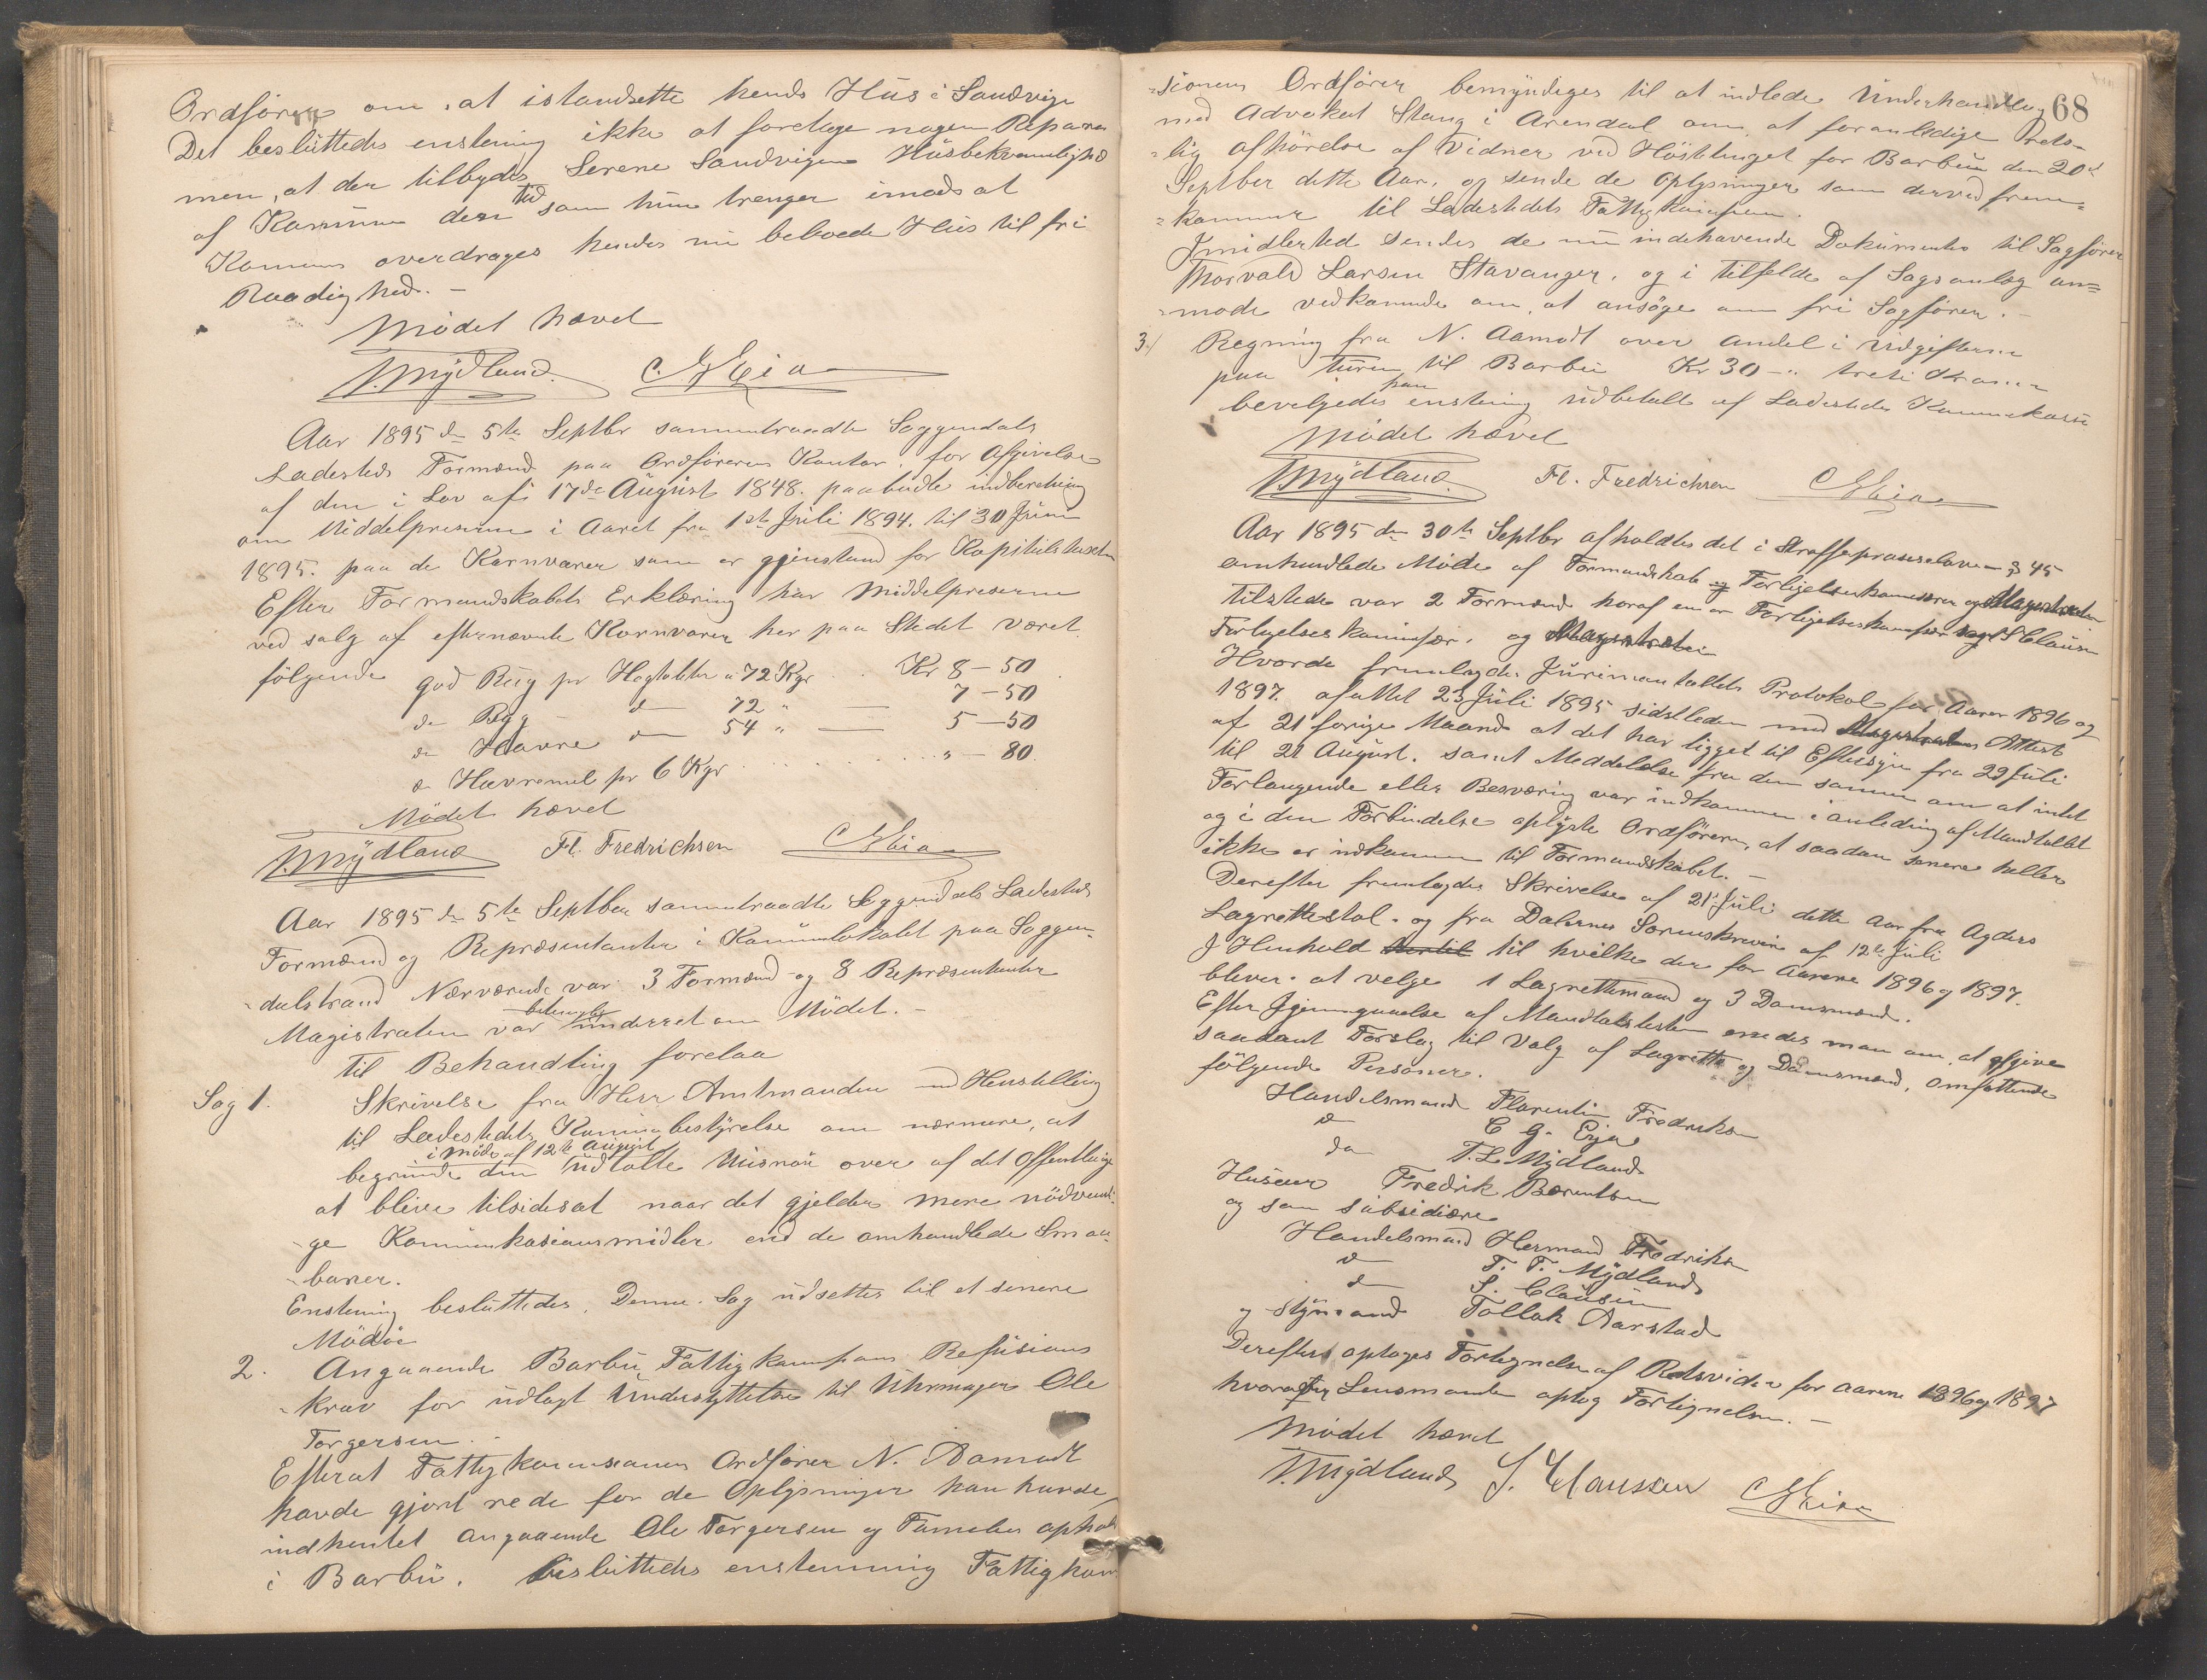 Ordføren om, at istandsette hends Hus i Sandvige
Det besluttedes enstemig ikke at foretage nogen Repara
men, at der tilbydes Serene Sandvigen Husbekvemlighed
af Kommune den tid som hun trenger imod at
Komunen overdrages hendes nu beboede Hus til fri
Raadighed. -
Mødet hævet
T. Mydland. C. G. Eia
Aar 1895 dn 5te Septbr sammentraadte Soggendals
Ladesteds Formænd paa Ordførerens Kontor, for Afgivelse
af den i Lov af 17de August 1848. paabudte indberetning
om Middelpriserne i Aaret fra 1ste Juli 1894. til 30 Juni
1895. paa de Kornvarer som er gjenstand for Kapitelstaxten
Efter Formandskabets Erklæring har Middelpriserne
ved salg af efternævnte Kornvarer her paa Stedet været
følgende god Rug pr Hegtoliter a 72 Kgr . . Kr 8-50
do Byg - do 72 " - 7-50
do Havre do 54 " - 5-50
do Havremel pr 6 Kgr . . . . . . . . " - 80
Mødet hævet
T. Mydland Fl. Fredrichsen C G Eia
Aar 1895 dn 5te Septber sammentraadte Soggendals Ladesteds
Formænd og Repræsentanter i Komunelokalet paa Soggen-
dalstrand Nærværende var 3 Formænd og 8 Repræsentanter
Magistraten var betimelig underret om Mødet. -
Til Behandling forelaa
Sag 1. Skrivelse fra Herr Amtmanden med Henstilling
til Ladestedets Komunebestyrelse om nærmere, at
begrunde den i Møde af 12te August udtalte Misnøie over af det Offentlige
at blive tilsidesat naar det gjelder mere nødvendi-
-ge Komunikasionsmidler end de omhandlede Smaa-
-baner.
Enstemig besluttedes, Denne Sag udsettes til et senere
Møde
2. Angaaende Barbu Fattigkomisions Refusions
-krav for udlagt Understyttelse til Uhrmager Ole
Torgersen. -
Efterat Fattigkomisionens Ordfører N. Aamodt
havde gjort rede for de Oplysninger han havde
indhentet angaaende Ole Torgersen og Families ophold
i Barbu. besluttedes enstemmig Fattigkom
68
-sionens Ordfører bemyndiges til at indlede Underhandling
med Advokat Stang i Arendal om, at foranledige Rets-
-lig afhørelse af Vidner ved Høsttinget for Barbu den 20de
Septber dette Aar, og sende de Oplysninger som derved frem-
-kommer til Ladestedets Fattigkomision.
Imidlertid sendes de nu indehavende Dokumenter til Sagfører
Thorvald Larsen Stavanger, og i tilfelde af Sagsanlæg an-
-mode vedkomende om, at ansøge om fri Sagfører. -
3./ Regning fra N. Aamodt over andel i Udgifterne
paa turen til Barbu Kr 30 - " treti Kroner
bevelgedes enstemig udbetalt af Ladestedes Kommunekasse
Mødet hævet
T. Mydland. Fl. Fredrichsen C G Eia
Aar 1895 dn 30te Septbr afholdtes det i Straffeproseslovens § 45
omhandlede Møde af Formandskab og Forligelseskomisærer og Magistraten
Tilstede var 2 Formænd hvoraf en er Forligelseskomisær samt S Clausen
Forligelseskomisær. og Magistraten
Hvorda fremlagdes Jurimantallets Protokol for Aaren 1896 og
1897. afattet 23 Juli 1895 sidstleden med Magistratens Attest
af 21 forige Maaned at det har ligget til Eftersyn fra 29 Juli
til 21 August. samt Meddelelse fra den samme om at intet
Forlangende eller Besværing var indkommen i anleding af Mandtallet
og i den Forbindelse oplyste Ordføreren, at saadan senere heller
ikke er indkommen til Formandskabet. -
Derefter fremlagdes Skrivelse af 21 Juli dette aar fra Agders
Lagrettestol. og fra Dalernes Sorenskriveri af 12te Juli
I Henhold hertil til hvilke der for Aarene 1896 og 1897.
bliver at velge 1 Lagrettemand og 3 Domsmænd.
Efter Igjennemgaaelse af Mandtalslisten enedes man om, at afgive
saadant Forslag til Valg af Lagrette og Domsmænd, omfattende
følgende Personer.
Handelsmand Florentin Fredriksen
do C G. Eja
do T. L. Mydland
Huseier Fredrik Berentsen
og som subsidiære
Handelsmand Herman Fredriksen
do T. T. Mydland
do S. Clausen
og Styrmand Tollak Aarstad
Derefter optoges Fortegnelse af Retsvidner for aarene 1896 og 1897
hvorefter Lensmanden optog Fortegnelsen. -
Mødet hævet
T. Mydland S. Claussen C G Eia